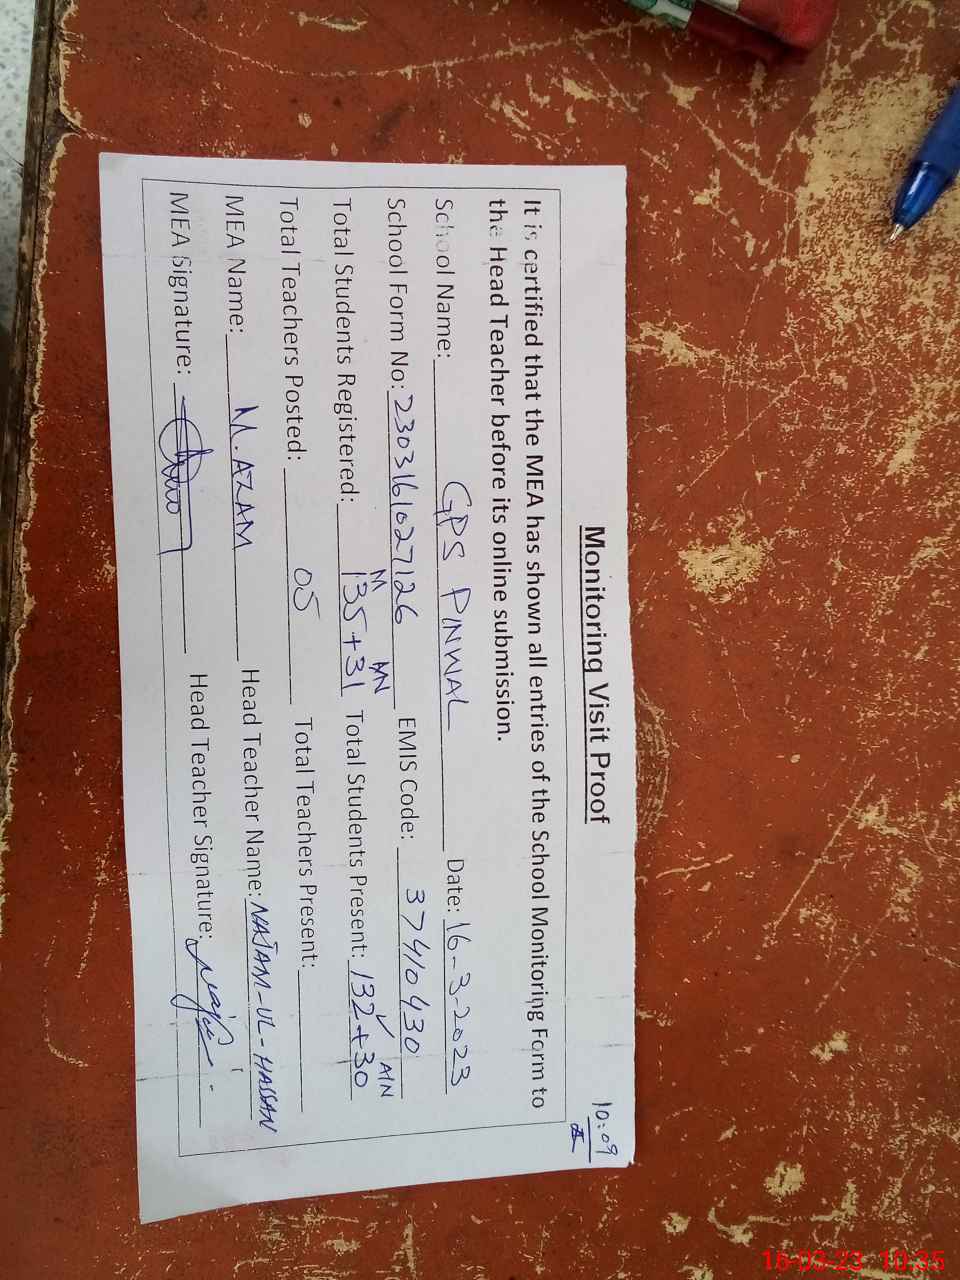 10:09
Monitoring Visit Proof
It is certified that the MEA has shown all entries of the School Monitoring Form to
the Head Teacher before its online submission.
School Name: GPS PNWAL Date: 16-3-2023
School Form No: 2303161027126 EMIS Code: 37410430
M
Total Students Registered: 135+31 Total Students Present: 132+30
Total Teachers Posted: 05 Total Teachers Present:
MEA Name: M. AZAM Head Teacher Name: NAJAM-UL-HASSAN
MEA Signature: Head Teacher Signature:
16-03-23 10:35